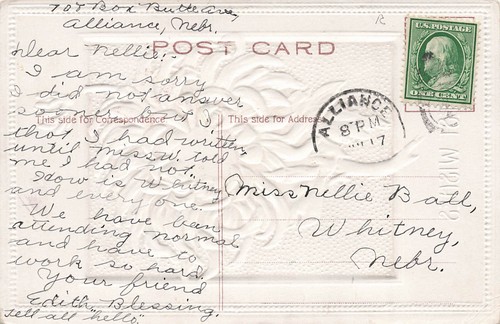 704 Box Butte Ave,
Alliance, Nebr.
Dear Nellie:-
POST CARD
I am sorry
did not answer
sooner but I
that I had written
until miss W told
me I had not.
How is Whitney
and every one.
We have been
attending normal
and have to
work so hard.
Your friend
Edith Blessing.
Tell all "hello".
This side for Correspondence
This side for Address
U.S. POSTAGE
ONE CENT
ALLIANCE
8 PM
17
Miss Nellie Ball,
Whitney,
Nebr.